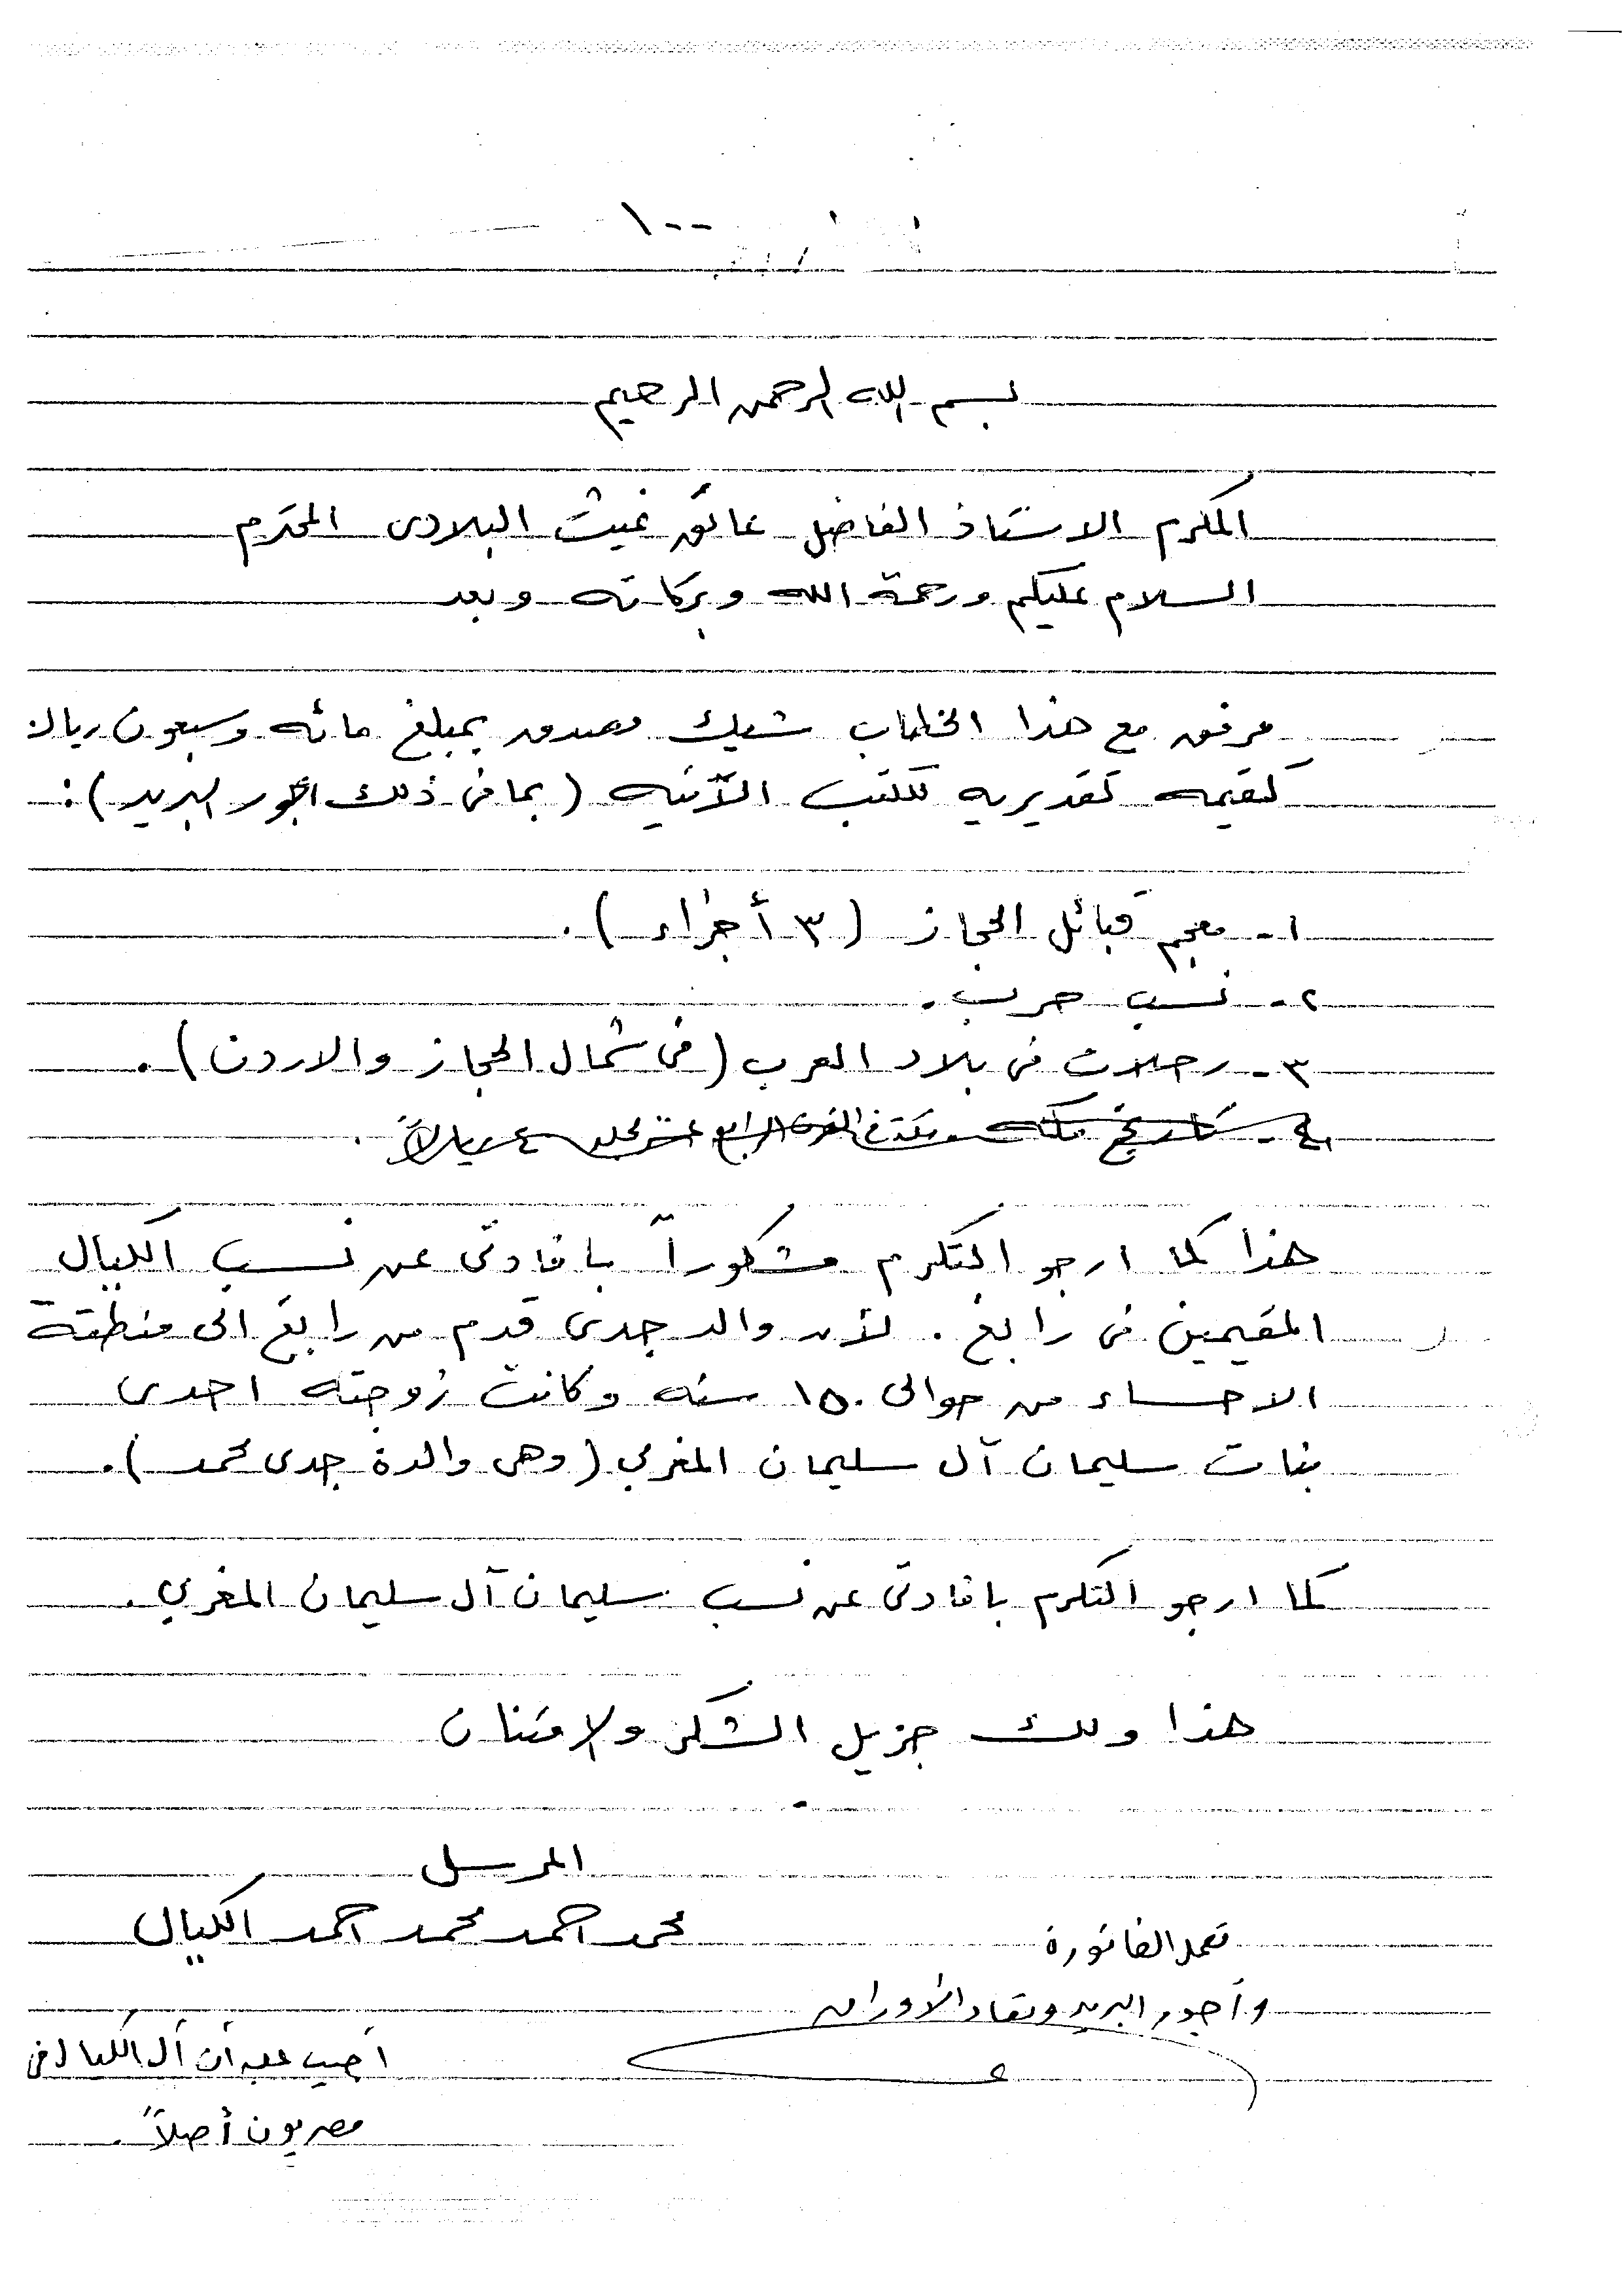 ١٠٠
بسم الله الرحمن الرحيم
المكرم الاستاذ الفاضل عاتق غيث البلادى المحترم
السلام عليكم ورحمة الله وبركاته وبعد
مرفق مع هذا الخطاب شيك مصدق بمبلغ مائه وسبعون ريالاً
كقيمه تقديريه للكتب الآتيه (بما فى ذلك اجور البريد):
١- معجم قبائل الحجاز (٣ أجزاء).
٢- نسب حرب.
٣- رحلات فى بلاد العرب (فى شمال الحجاز والاردن).
٤- تاريخ مكه القرن الرابع عشر
هذا كما ارجو التكرم مشكوراً بافادتى عن نسب الكيال
المقيمين فى رابغ. لأن والد جدى قدم من رابغ الى منطقة
الاحساء من حوالى ١٥٠ سنه وكانت زوجته احدى
بنات سليمان آل سليمان المغربي (وهى والدة جدى محمد).
كما ارجو التكرم بافادتى عن نسب سليمان آل سليمان المغربي.
هذا ولك جزيل الشكر والامتنان
المرسل
محمد احمد محمد احمد الكيال
تعمد الفاتورة
وأجور البريد وتعاد الأوراق
أجيب عليه أن آل الكيال فى
مصريون أصلاً.